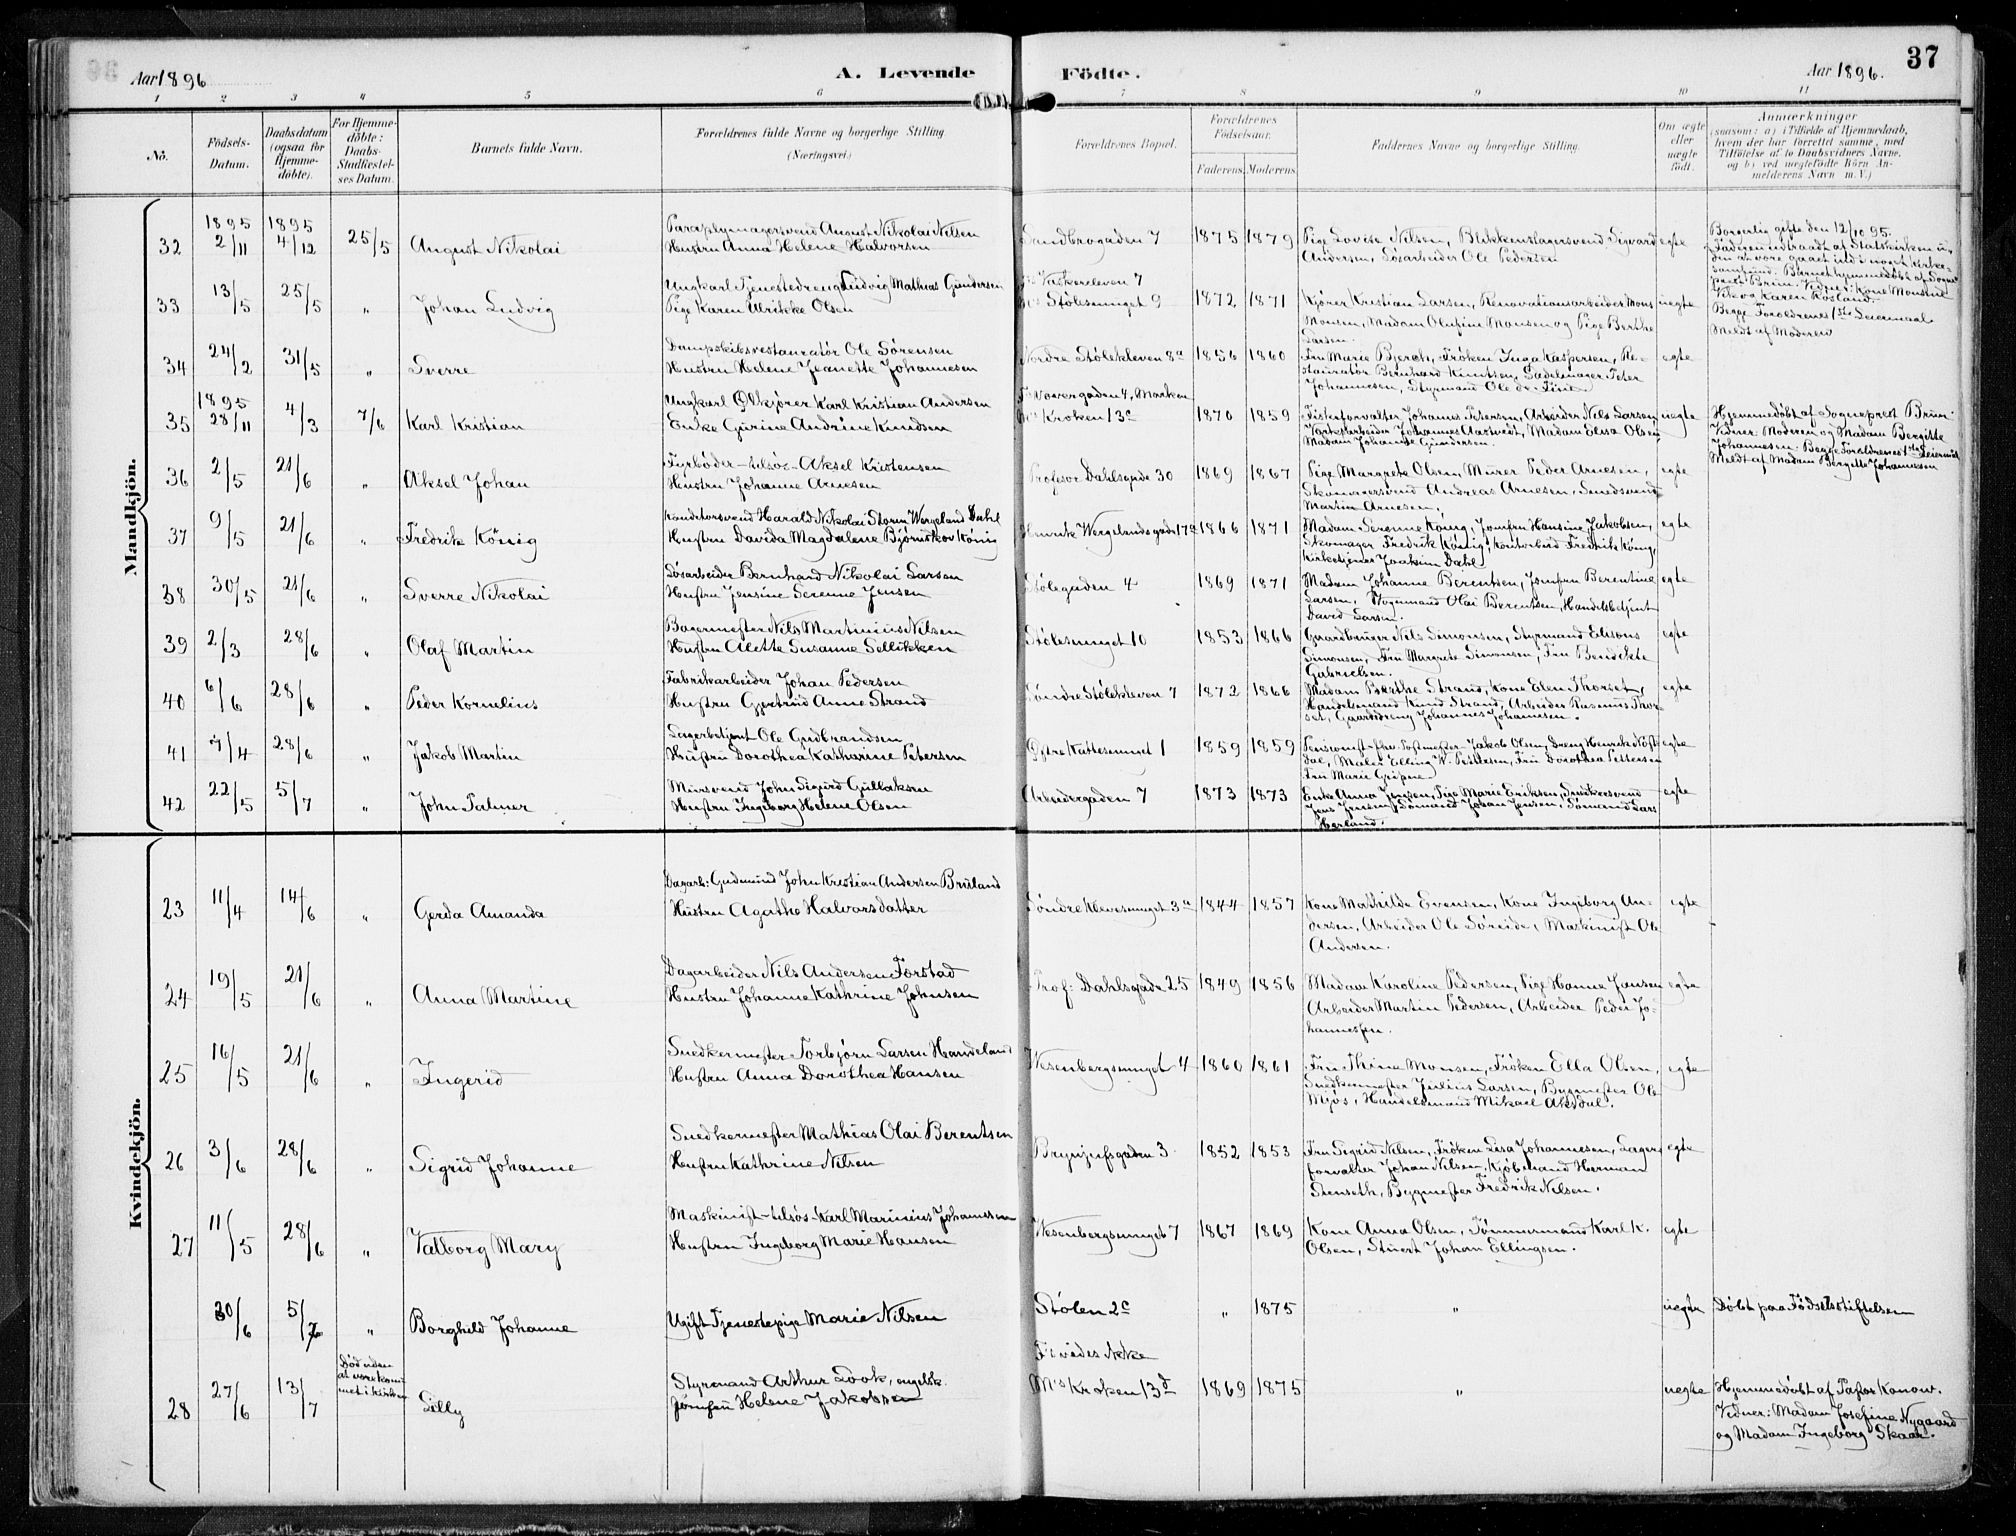 Aar 1896
A. Levende
Födte.
Aar 1896.
37
1 2 3 4 5 6 7 8 9 10 11
No.
Födsels-
Datum.
Daabsdatum
(ogsaa for
Hjemme-
döbte).
For Hjemme-
döbte:
Daabs-
Stadfæstel-
ses Datum.
Barnets fulde Navn.
Forældrenes fulde Navne og borgerlige Stilling
(Næringsvei.)
Forældrenes Bopæl.
Forældrenes
Födselsaar.
Faderens. Moderens.
Faddernes Navne og borgerlige Stilling.
Om ægte
eller
uægte
födt.
Anmærkninger
(saasom: a) i Tilfælde af Hjemmedaab,
hvem der har forrettet samme, med
Tilföielse af to Daabsvidners Navne,
og b) ved uægtefödte Börn An-
melderens Navn m. V.)
Mandkjön.
32
1895
2/11
1895
4/12
25/5
August Nikolai
Paraplymagersvend August Nikolai Nilsen
Hustru Anna Helene Halvorsen
Sandbrogaden 7
1875 1879
Pige Lovise Nilsen, Blikkenslagersvend Sigvard
Andersen, Løsarbeider Ole Pedersen
egte
Borgerlig gifte den 12/10 95.
Faderen udtraadt af Statskirken u-
den at være gaaet ind i noget Kirke-
samfund. Barnet hjemmedøbt af Sogne-
prest Brun. Vidner: Kone Monsine
Vik og Karen Røsland.
33
13/5
25/5
"
Johan Ludvig
Ungkarl Tjenestedreng Ludvig Mathias Gundersen
Pige Karen Ulrikke Olsen
Fs Vaskerelven 7
Ms Stølesmuget 9
1872 1871
Kjører Kristian Larsen, Renovationsarbeider Mons
Monsen, Madam Olufine Monsen og Pige Berthe
Larsen.
uegte
Begge Forældrenes 1ste Leiermaal
Meldt af Moderen
34
24/2
31/5
"
Sverre
Dampskibsrestauratør Ole Sørensen
Hustru Helene Jeanette Johannesen
Nordre Stølekleven 8a
1856 1860
Fru Marie Bjerck, Frøken Inga Kaspersen, Re-
stauratør Bernhard Knutsen, Sadelmager Peter
Johannesen, Styrmand Ole
egte
35
1895
28/11
4/3
7/6
Karl Kristian
Ungkarl Ølkjører Karl Kristian Andersen
Enke Gurine Andrine Knudsen
Fs Vævergaden 4, Marken
Ms Kroken 13c
1870 1859
Fiskeforvalter Johannes Petersen, Arbeider Nils Larsen,
Værftsarbeider Johannes Aartvedt, Madam Elisa Olsen,
Madam Johanne Gundersen.
uegte
Hjemmedøbt af Sogneprest Brun.
Vidner: Moderen og Madam Bergitte
Johannesen. Begge Forældrenes 1ste Leiermaal
Meldt af Madam Bergitte Johannesen
36
2/5
21/6
"
Aksel Johan
Fyrbøder-tilsøs- Aksel Kristensen
Hustru Johanne Arnesen
Profesor Dahlsgade 30
1869 1867
Pige Margrete Olsen, Murer Peder Arnesen,
Skomagersvend Andreas Arnesen, Smedsvend
Martin Arnesen.
egte
37
9/5
21/6
"
Fredrik König
Konditorsvend Harald Nikolai Storm Wergeland Dahl
Hustru Davida Magdalene Bjørnskov König
Henrik Wergelandsgade 17a
1866 1871
Madam Serenne König, Jomfru Hansine Jakobsen,
Skomager Fredrik König, Kontorbud Fredrik König,
Kirketjener Joakim Dahl
egte
38
30/5
21/6
"
Sverre Nikolai
Løsarbeider Bernhard Nikolai Larsen
Hustru Jensine Serenne Jensen
Stølegaden 4
1869 1871
Madam Johanne Berentsen, Jomfru Berentine
Larsen, Styrmand Olai Berentsen, Handelsbetjent
David Larsen.
egte
39
2/3
28/6
"
Olaf Martin
Bagermester Nils Martinius Nilsen
Hustru Alette Susanne Sellikken
Stølesmuget 10
1853 1866
Gaardbruger Nils Simonsen, Styrmand Elisons
Simonsen, Fru Margrete Simonsen, Fru Bendikte
Gabrielsen.
egte
40
6/6
28/6
"
Peder Kornelius
Fabrikarbeider Johan Pedersen
Hustru Gjertrud Anne Strand
Søndre Stølekleven 7
1872 1866
Madam Berthe Strand, Kone Elen Thorset,
Handelsmand Knud Strand, Arbeider Rasmus Thor-
set, Gaardsdreng Johannes Johannesen.
egte
41
7/4
28/6
"
Jakob Martin
Lagerbetjent Ole Gudbrandsen
Hustru Dorothea Katharine Petersen
Øvre Kattesmuget 1
1859 1859
Pensionist-fhv. Postmester- Jakob Olsen, Dreng Henrik Nøst-
dal, Maler Elling W. Pettersen, Fru Dorothea Pettersen
Fru Marie Gripne.
egte
42
22/5
5/7
"
John Palmer
Mursvend John Sigurd Gullaksen
Hustru Ingeborg Helene Olsen
Arbeidergaden 7
1873 1873
Enke Anna Jensen, Pige Marie Eriksen, Snedkersvend
Jens Jensen, Sømand Johan Jensen, Sømand Lars
Herland.
egte
Kvindekjön.
23
11/4
14/6
"
Gerda Amanda
Dagarb: Gudmund John Kristian Andersen Bruland
Hustru Agathe Halvarsdatter
Søndre Klevesmuget 3a
1844 1857
Kone Mathilde Evensen, Kone Ingeborg An-
dersen, Arbeider Ole Søreide, Maskinist Ole
Andersen.
egte
24
19/5
21/6
"
Anna Martine
Dagarbeider Nils Andersen Forstad
Hustru Johanne Kathrine Johnsen
Prof: Dahlsgade 25
1849 1856
Madam Karoline Pedersen, Pige Hanne Jansen
Arbeider Martin Pedersen, Arbeider Peder Jo-
hannessen.
egte
25
16/5
21/6
"
Ingerid
Snedkermester Torbjørn Larsen Handeland
Hustru Anna Dorothea Hansen
Wesenbergsmuget 4
1860 1861
Fru Thina Monsen, Frøken Ella Olsen,
Snedkermester Julius Larsen, Bygmester Ole
Mjøs, Handelsmand Mikael Aksdal.
egte
26
3/6
28/6
"
Sigrid Johanne
Snedkermester Mathias Olai Berentsen
Hustru Kathrine Nilsen
Brynjufsgaden 3
1852 1853
Fru Sigrid Nilsen, Frøken Lisa Johannesen, Lager-
forvalter Johan Nilsen, Kjøbmand Herman
Stenseth, Bygmester Fredrik Nilsen.
egte
27
11/5
28/6
"
Valborg Mary
Maskinist-tilsøs- Karl Marinius Johannesen
Hustru Ingeborg Marie Hansen
Wesenbergsmuget 7
1867 1869
Kone Anna Olsen, Tømmermand Karl K.
Olsen, Stuert Johan Ellingsen.
egte
30/6
5/7
"
Borghild Johanne
Ugift Tjenestepige Marie Nilsen
Stølen 2c
" 1875
"
uegte
Døbt paa Fødselsstiftelsen
28
27/6
13/7
Død uden
at være kom-
met i kirken
Lilly
Styrmand Arthur Look, engelsk.
Jomfru Helene Jakobsen
Fs vides ikke
Ms Kroken 13d
1869 1875
"
uegte
Hjemmedøbt af Pastor Konow.
Vidner: Madam Josefine Nygaard
og Madam Ingeborg Skaar.